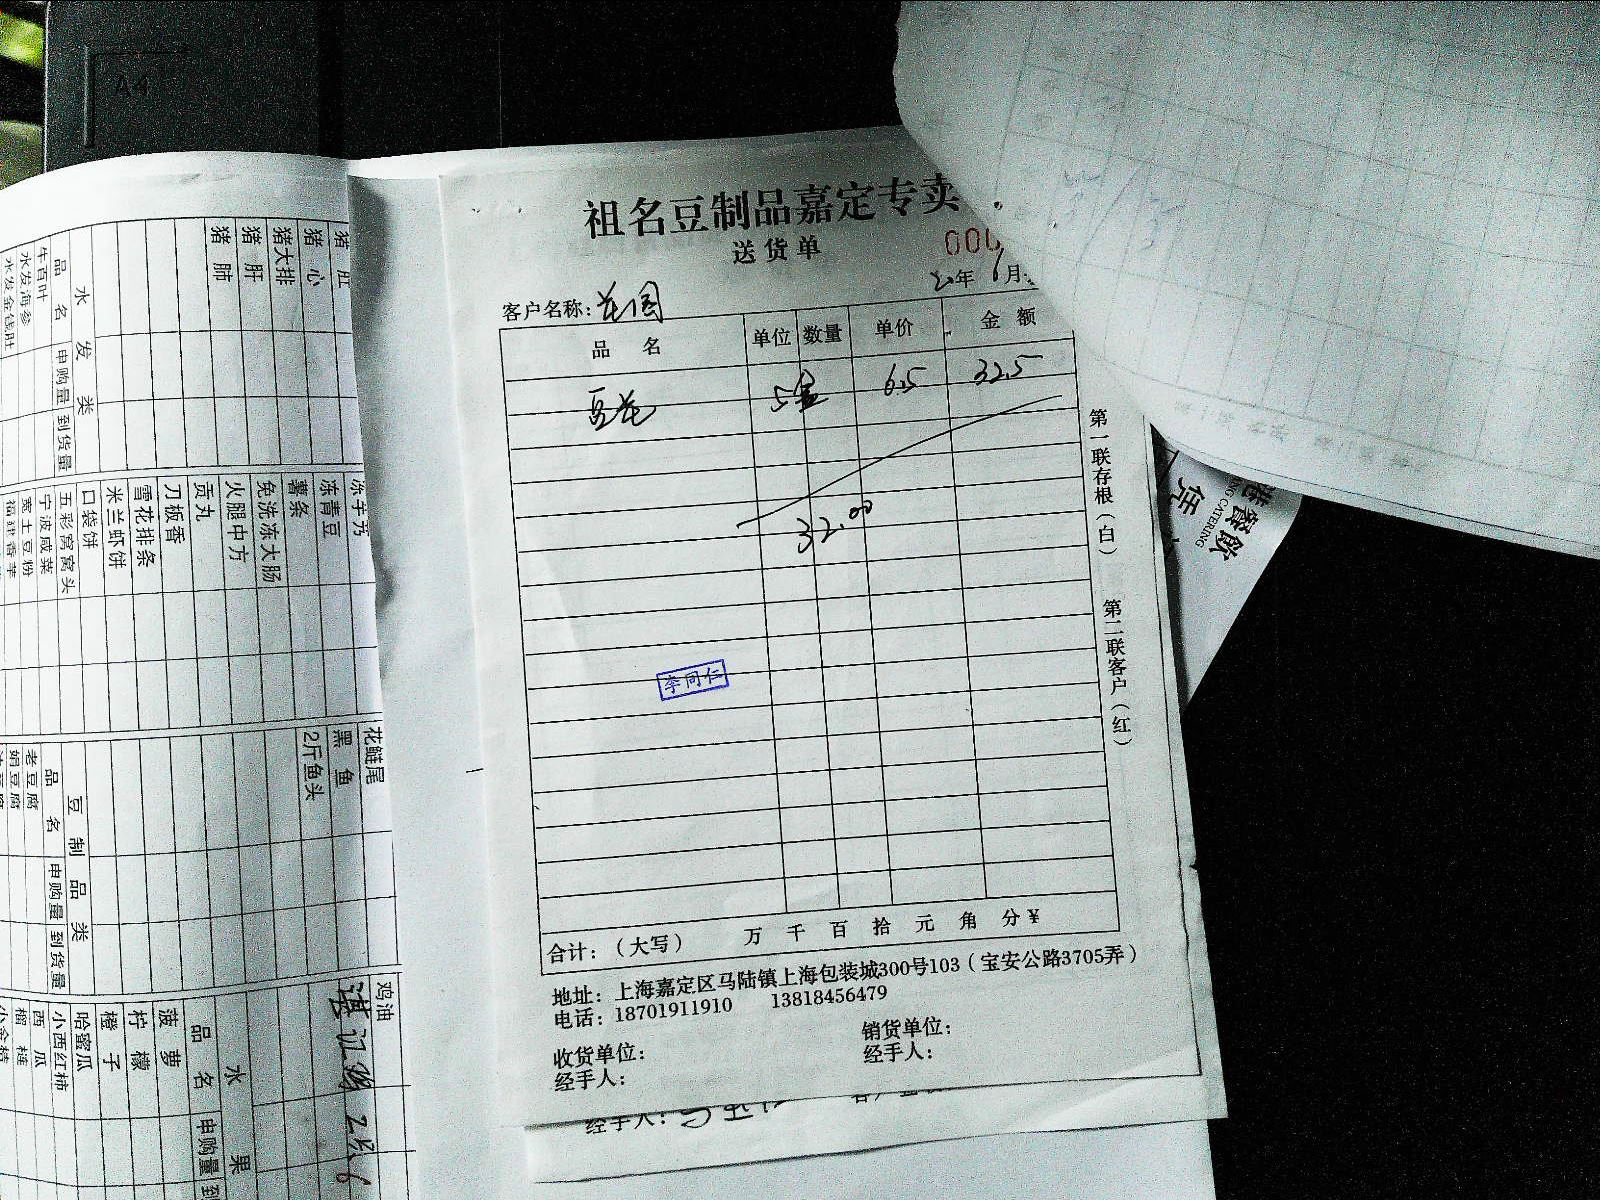 祖名豆制品嘉定专卖
送货单
000
年 月
客户名称：花园
品 名 单位 数量 单价 金 额
豆花 5盒 6.5 32.5
32.00
李同仁
合计：（大写） 万 千 百 拾 元 角 分 ¥
地址：上海嘉定区马陆镇上海包装城300号103（宝安公路3705弄）
电话：18701911910 13818456479
收货单位： 销货单位：
经手人： 经手人：
第一联存根（白） 第二联客户（红）
经手人：
A4
猪肚
猪心
猪大排
猪肝
猪肺
水发类
品名 申购量 到货量
牛百叶
水发海参
水发金钱肚
冻青豆
薯条
免洗冻大肠
火腿中方
贡丸
刀板香
雪花排条
米兰虾饼
口袋饼
五彩窝窝头
宁波咸菜
宽土豆粉
福建香芋
花鲢尾
黑鱼
2斤鱼头
豆制品类
品名 申购量 到货量
老豆腐
娟豆腐
鸡油
水果
品名 申购量 到
菠萝
柠檬
橙子
哈蜜瓜
小西红柿
西瓜
榴梿
小金桔
港餐飲
NG CATERING
凭